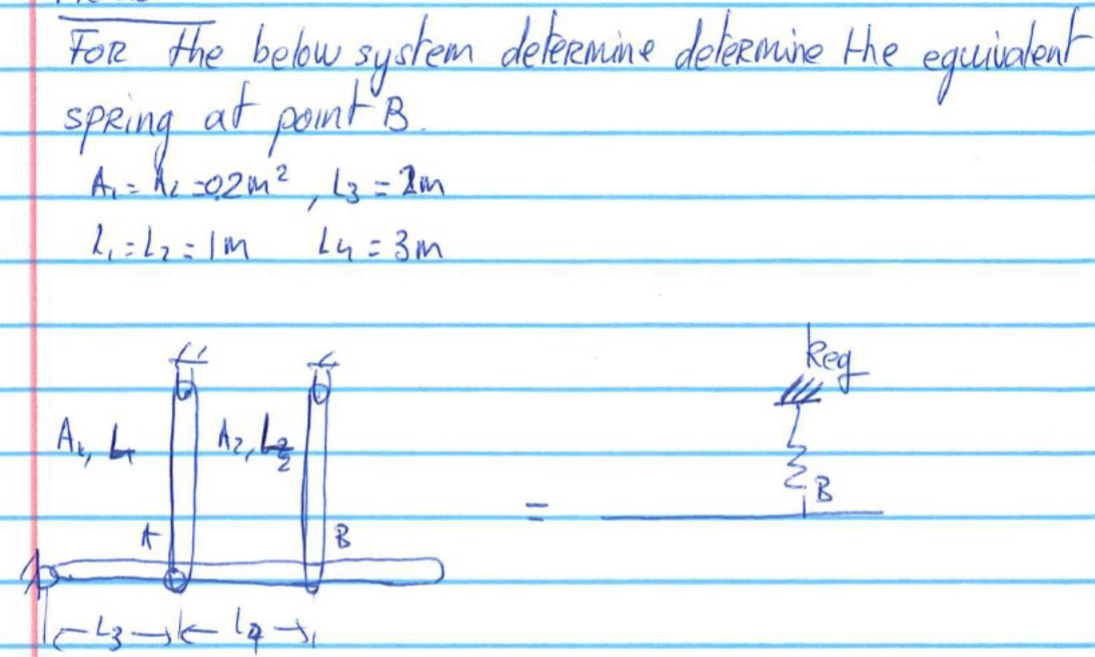 FOR the below system determine determine the equivalent
spring at point B.
A₁ = A₂ = 0.2m² , L₃ = 2m
L₁ = L₂ = 1m L₄ = 3m
keq
A₁, L₁ A₂, L₂
B
A B
=
L₃ L₄